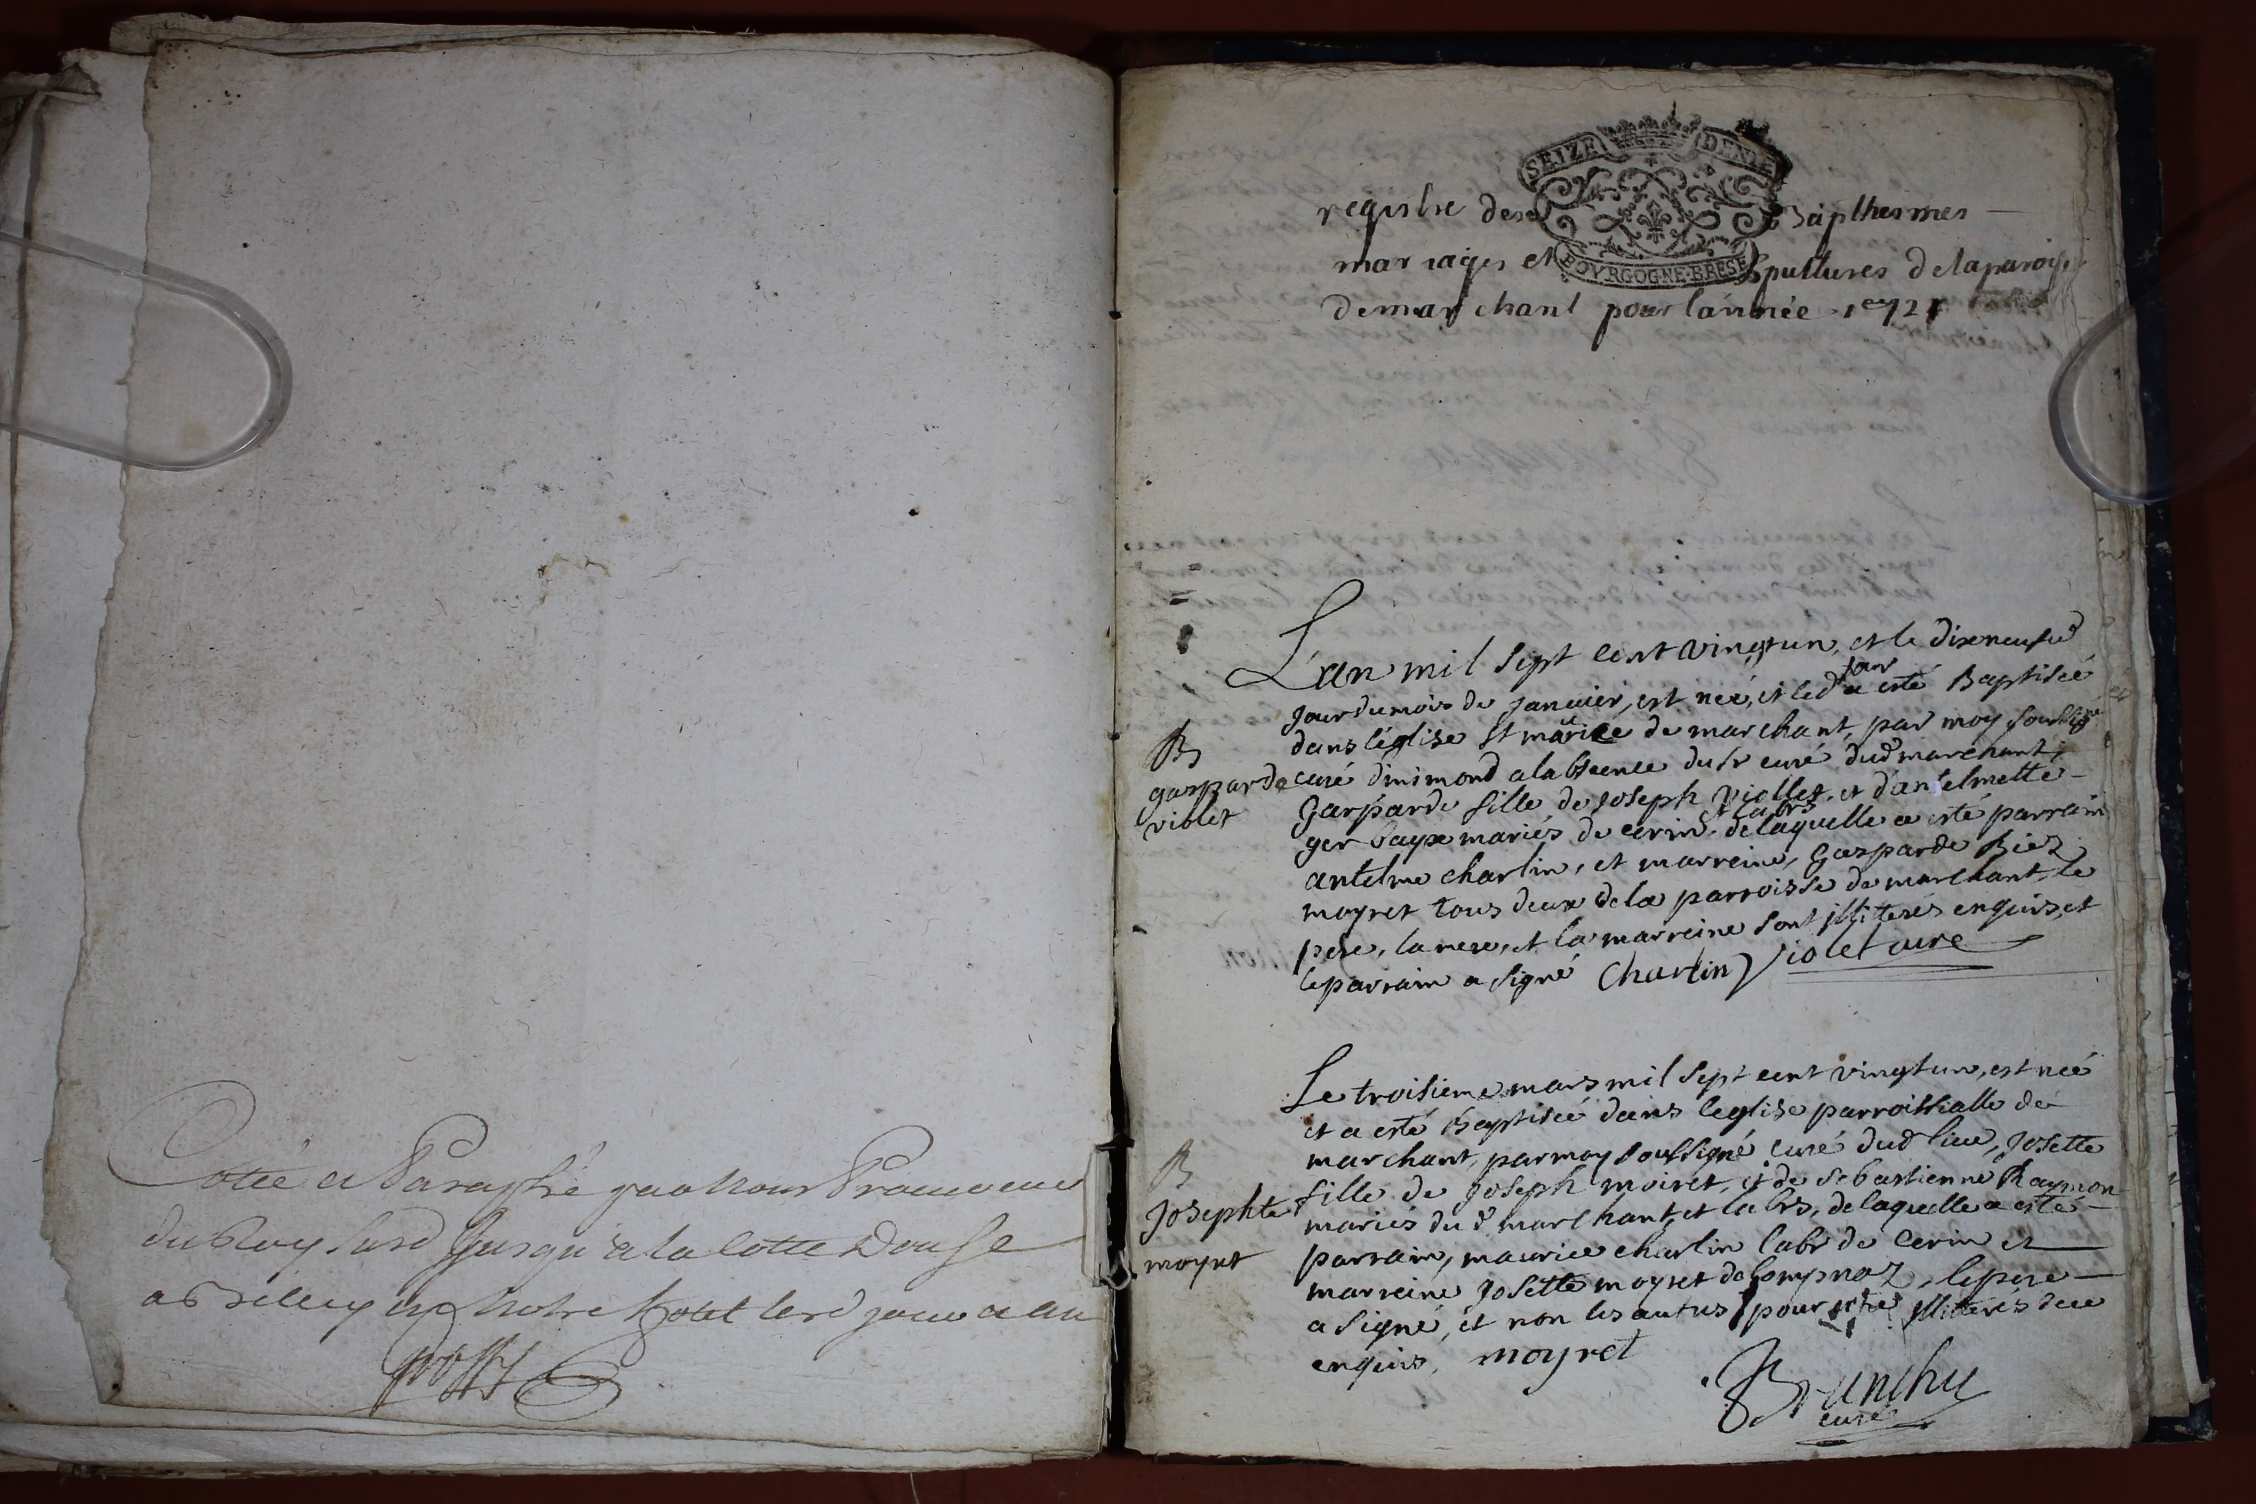 Cotté et Paraphé par nous Procureur
du Roy susd jusqu'a la cotte Douse
a Belley en notre hotel lesd jour et an
SEIZE DENIE
BOVRGOGNE·BRESE
registre des Bapthesmes
mariages et spultures de la paroisse
de marchant pour l'année 1721
L'an mil sept cent vingtun, et le dixneufue
jour du mois de janvier, est neé, et led jour a esté Baptiseé
dans l'église st maurice de marchant, par moy soussigné
curé d'inimond a labscence du sr curé dud marchant,
B
gasparde
violet
gasparde fille de joseph viollet, et d'anselmette
gerbayx mariés de cerin, labrs delaquelle a esté parrain
antelme charlin, et marreine, gasparde
moyret tous deux de la parroisse de marchant, le
pere, la mere, et la marreine sont illiterés enquis, et
le parrain a signé charlin violet cure
Le troisieme mars mil sept cent vingtun, est neé
et a esté Baptiseé dans leglise parroissialle de
marchant, par moy soussigné curé dud lieu, josette
B
josephte
moyret
fille de joseph moiret, et de sebastienne Raymon
mariés dud marchant, et labrs, de laquelle a esté
parrain, maurice charlin labr de cerin et
marreine josette moyret de lompnaz, le pere
a signé, et non les autres pour estre illiterés de ce
enquis, moyret
Brunchu
curé